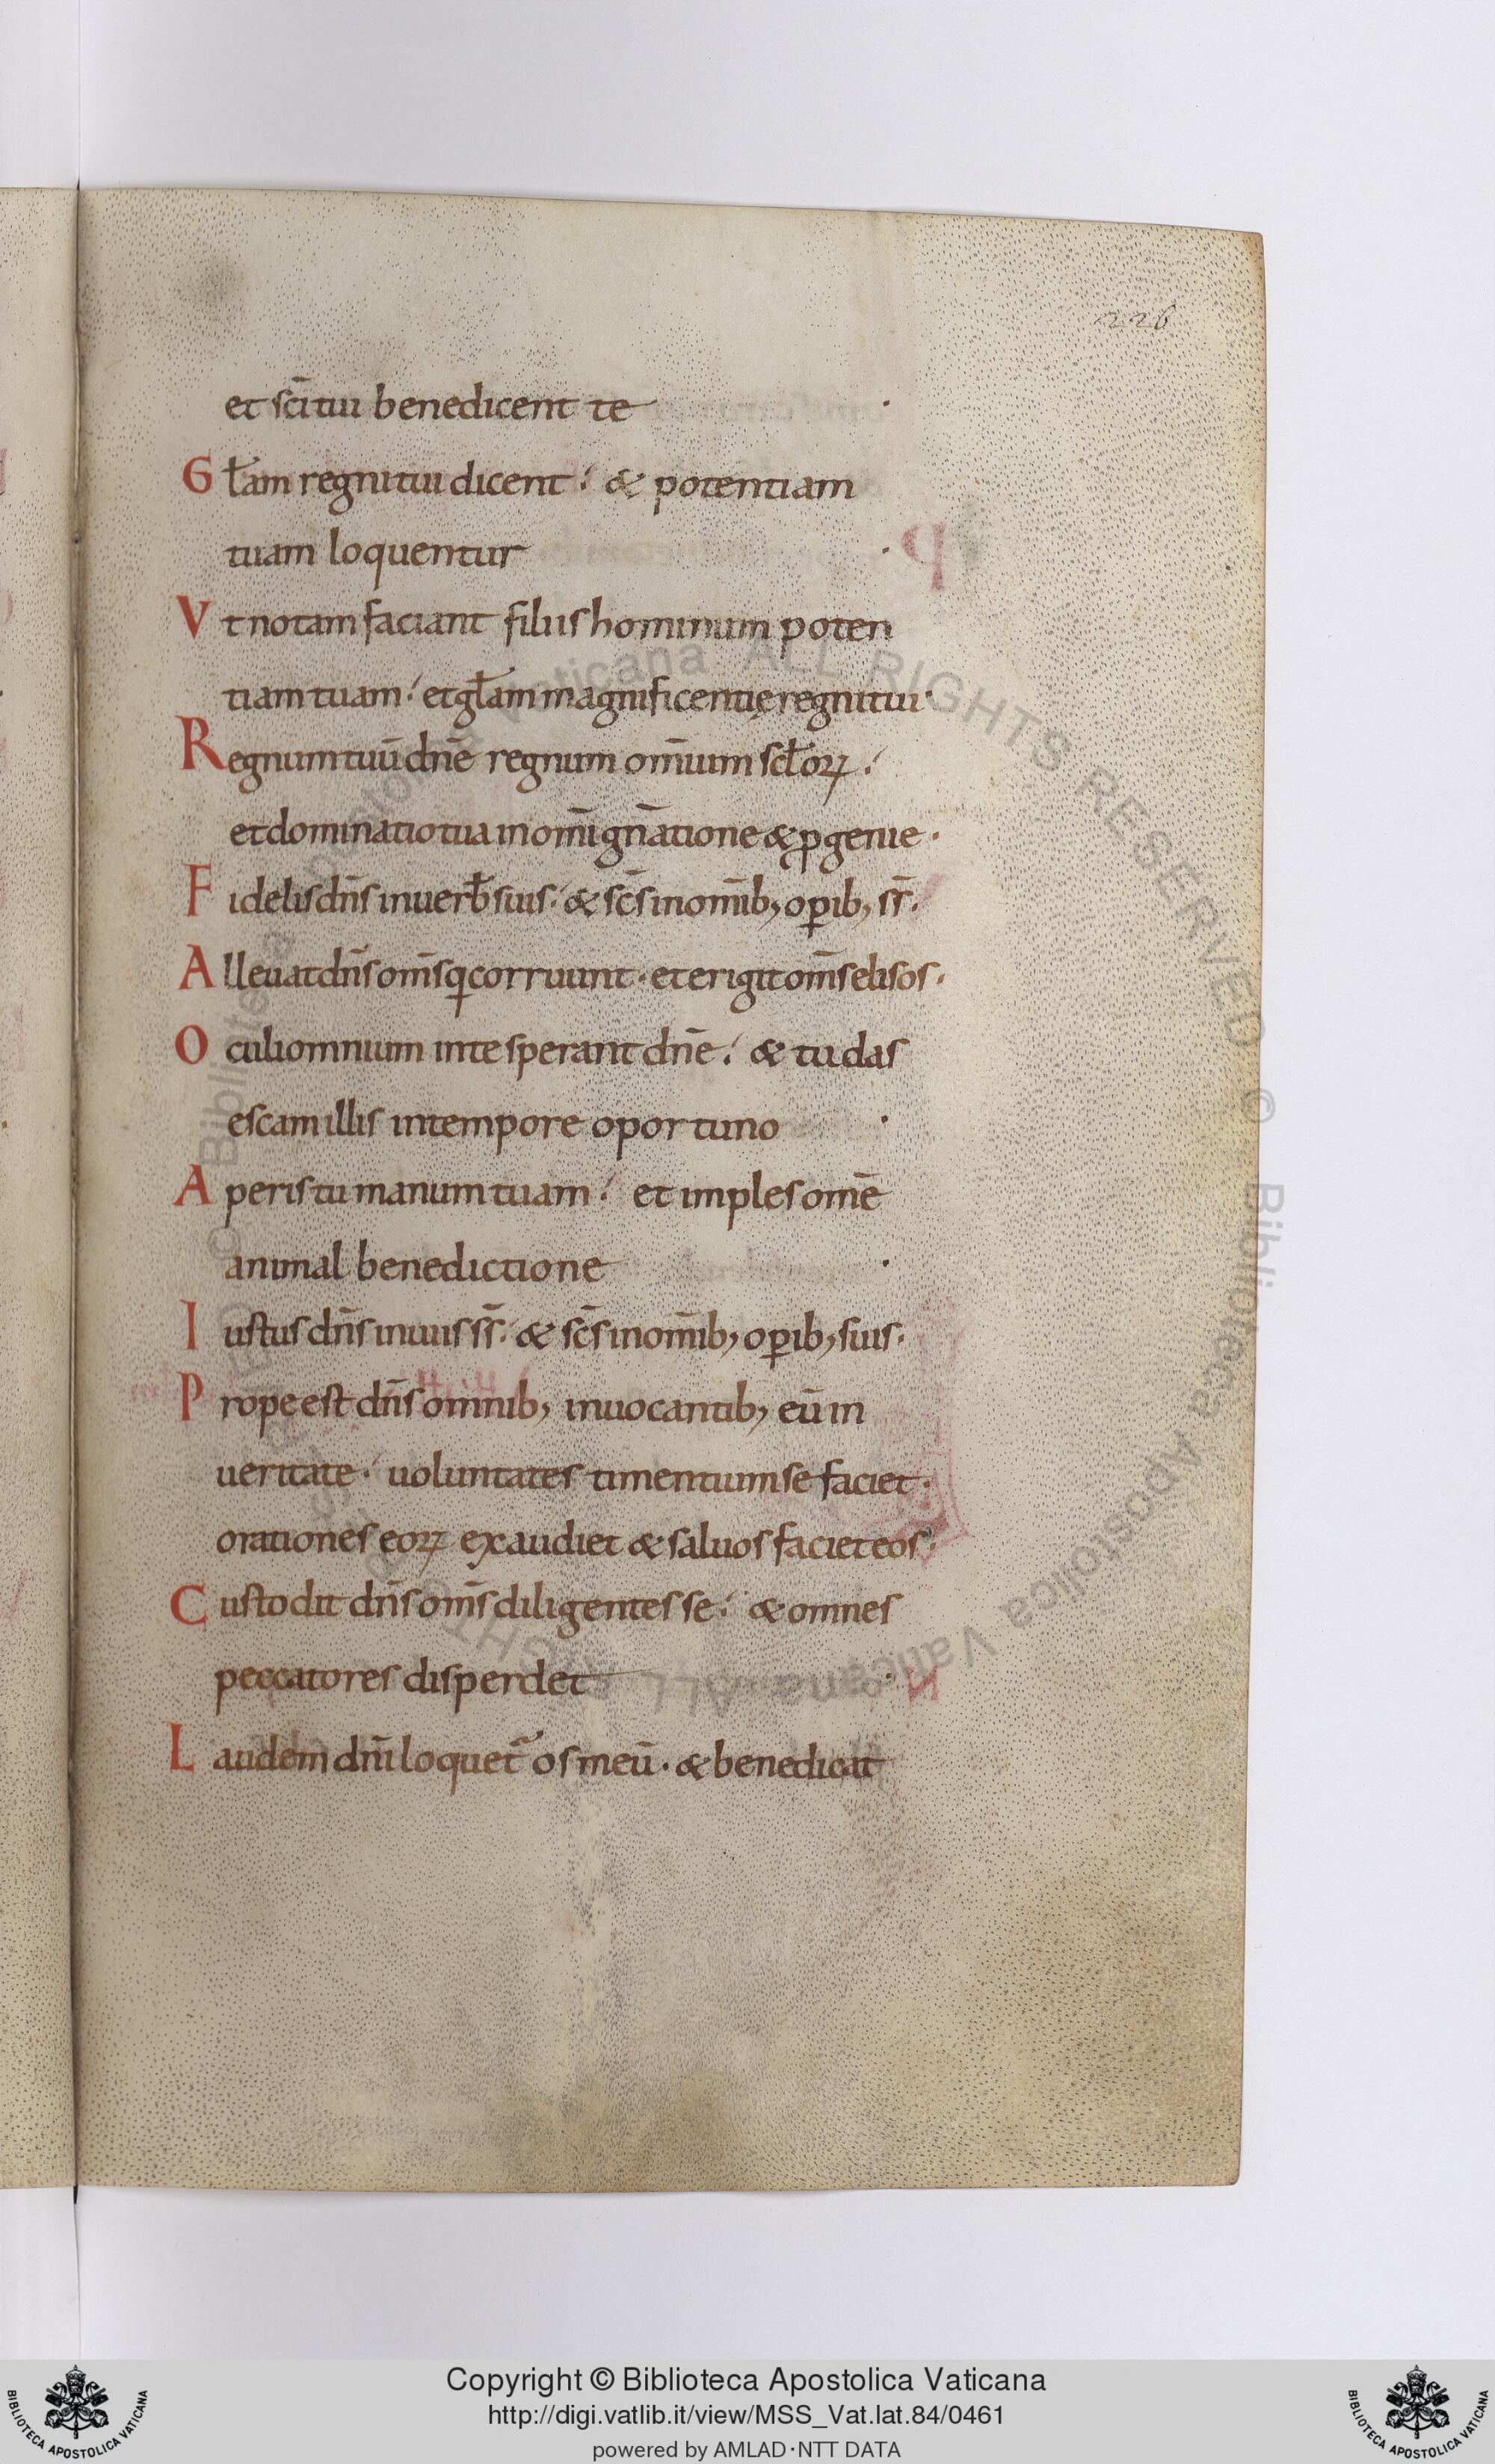 226
et sc̄i tui benedicent te ·
Gl̄am regni tui dicent ⁊ & potentiam
tuam loquentur ·
Vt notam faciant filiis hominum poten
tiam tuam ⁊ et gl̄am magnificentię regni tui ·
Regnum tuū dn̄e regnum om̄ium scl̄oꝝ ⁊
et dominatio tua in om̄i gn̄atione & ꝓgenie ·
Fidelis dn̄s in uerb̄ suis ⁊ & sc̄s in om̄ib; oꝑib; sr̄ ·
Alleuat dn̄s om̄s qi corruunt · et erigit om̄s elisos ·
Oculi omnium in te sperant dn̄e ⁊ & tu das
escam illis in tempore oportuno ·
Aperis tu manum tuam ⁊ et imples om̄e
animal benedictione ·
Iustus dn̄s in uiis ss̄ ⁊ & sc̄s in om̄ib; oꝑib; suis ·
Prope est dn̄s omnib; inuocantib; eū in
ueritate ⁊ uoluntates timentium se faciet ·
orationes eoꝝ exaudiet & saluos faciet eos ·
Custodit dn̄s om̄s diligentes se ⁊ & omnes
peccatores disperdet ·
Laudem dn̄i loquet̄ os meū · & benedicat
Copyright © Biblioteca Apostolica Vaticana
http://digi.vatlib.it/view/MSS_Vat.lat.84/0461
powered by AMLAD·NTT DATA
BIBLIOTECA APOSTOLICA VATICANA
BIBLIOTECA APOSTOLICA VATICANA